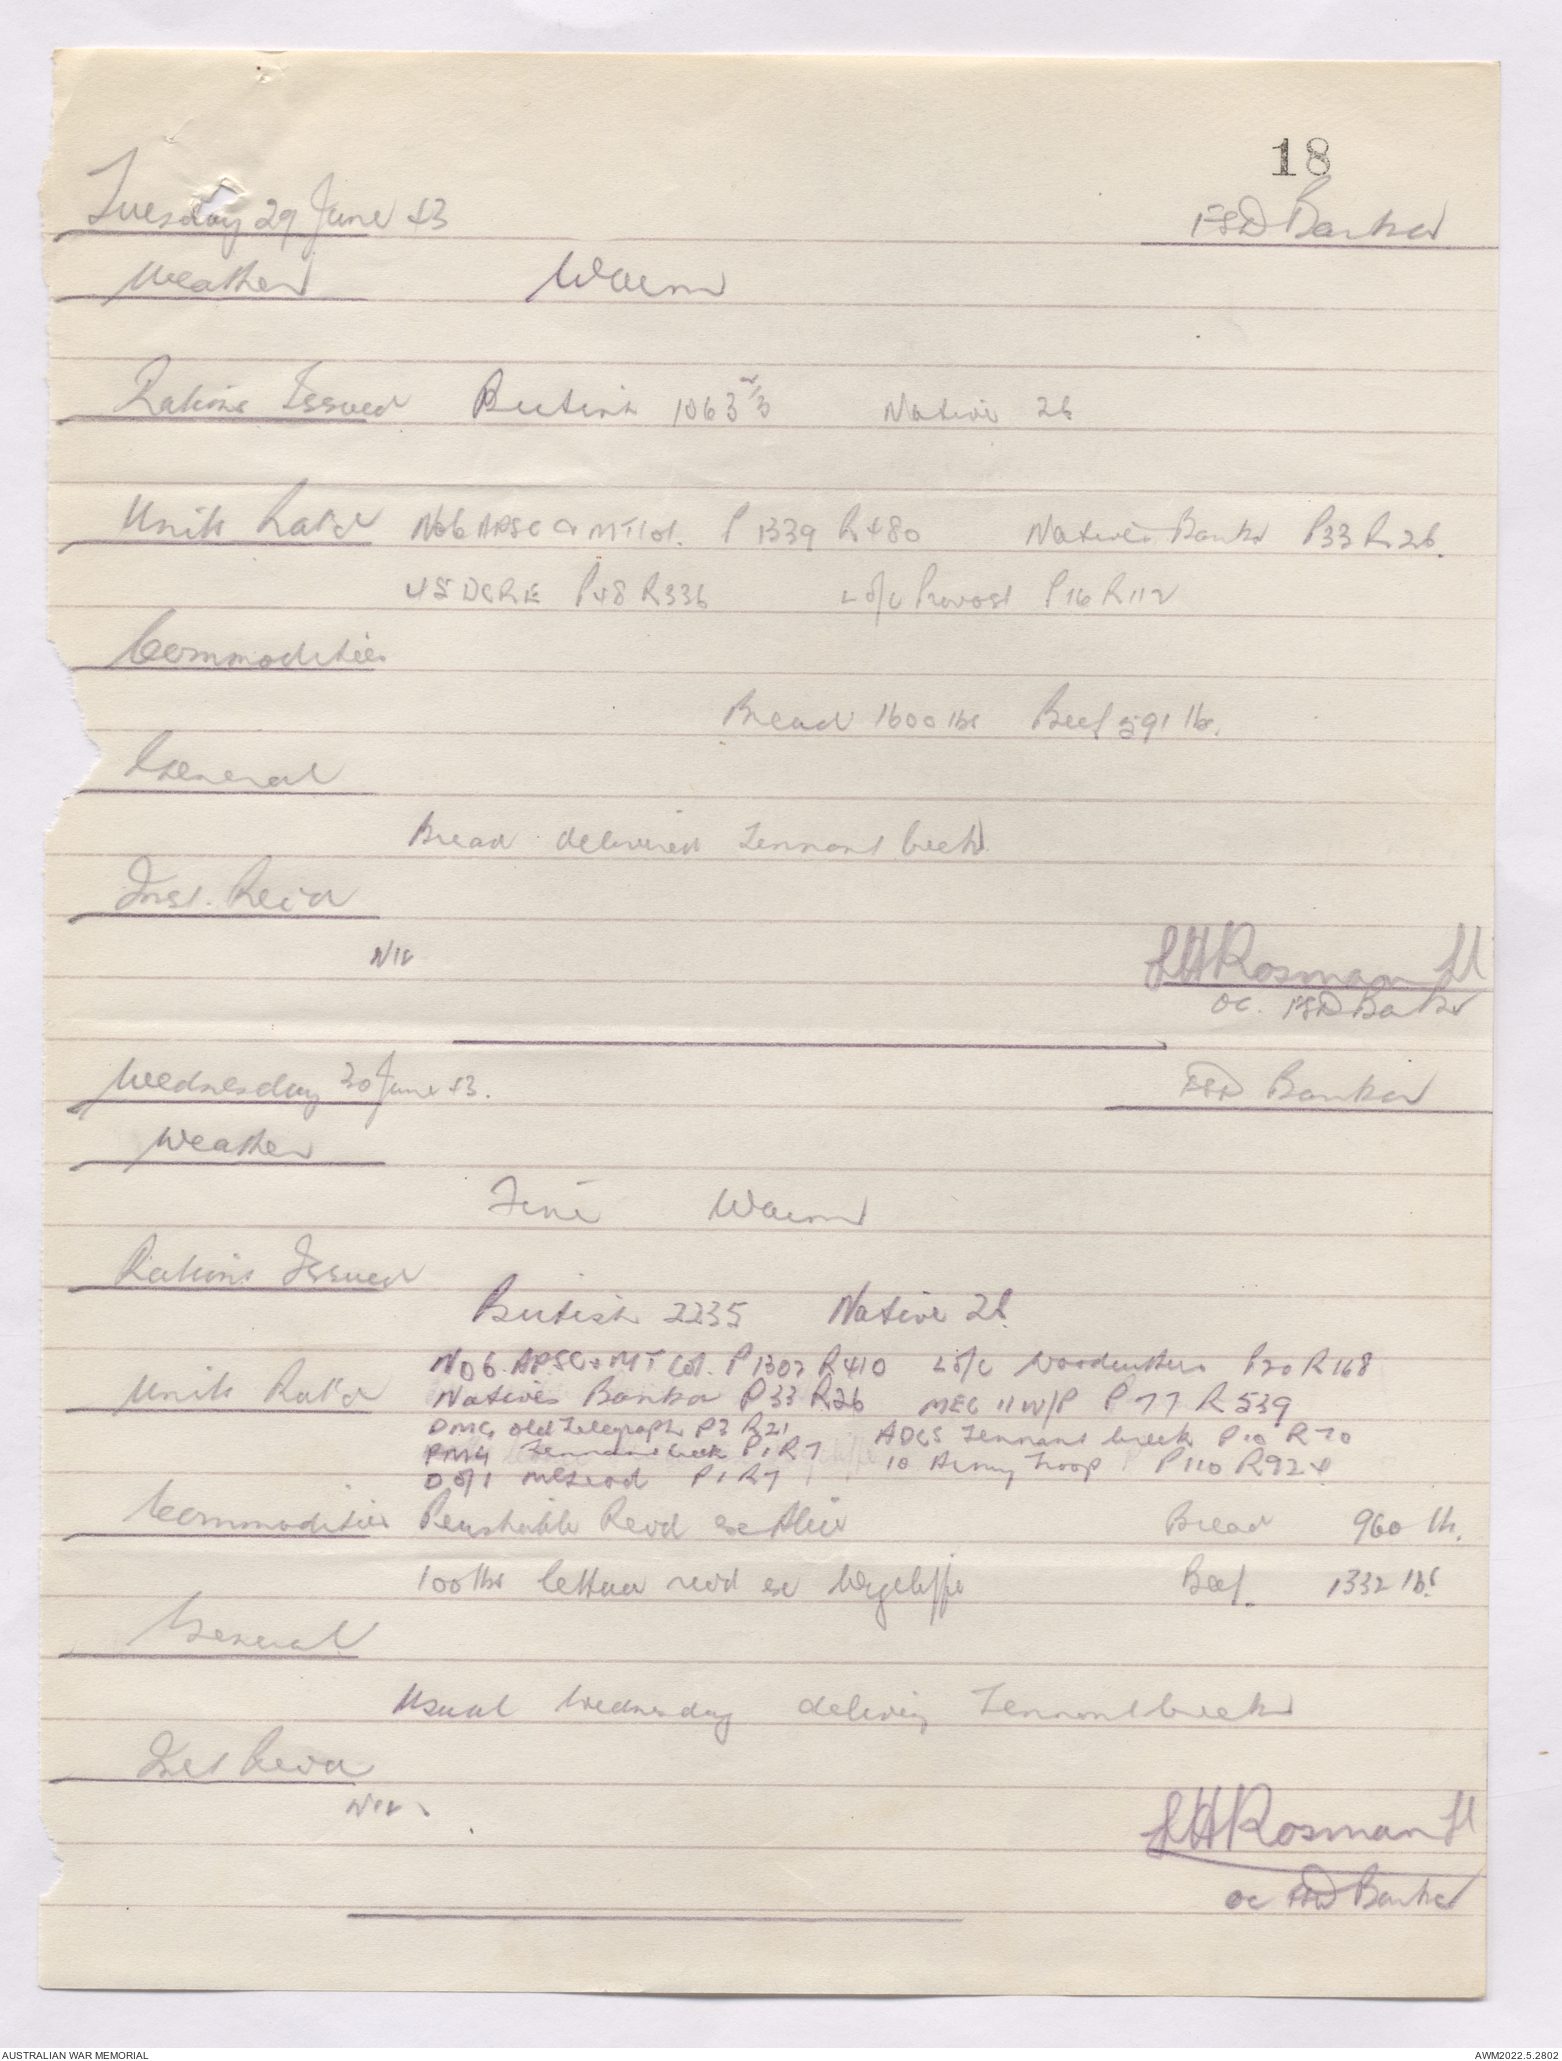 18
Tuesday 29 June 43 FSD Banka
Weather Warm
Rations Issued British 1063 2/3 Native 26
Units Rat'd No 6 APSC & MT Col. P 1339 R 480 Natives Banka P33 R 26.
45 DCRE P48 R336 L of C Provost P16 R112
Commodities
Bread 1600 lbs Beef 591 lbs.
General
Bread delivered Tennant Creek
Inst. Rec'd
Nil
LH Rosman Lt
OC. FSD Banka
Wednesday 30 June 43. FSD Banka
Weather
Fine Warm
Rations Issued
British 2235 Native 26
No 6. APSC & MT Col. P 1302 R 410 L of C Woodcutters P20 R168
Units Rat'd Natives Banka P33 R26 MEC 11 W/P P 77 R 539
DMG Old Telegraph P3 R21 ADCS Tennant Creek P10 R70
PMG Tennant Creek P1 R7 10 Army Troop P110 R924
D of I McLeod P1 R7
Commodities Perishable Recvd ex Alice Bread 960 lb.
100 lbs lettuce recvd ex Wycliffe Beef. 1332 lbs.
General
Usual Wednesday delivery Tennant Creek
Inst Recvd
Nil.
LH Rosman Lt
OC FSD Banka
AUSTRALIAN WAR MEMORIAL AWM2022.5.2802